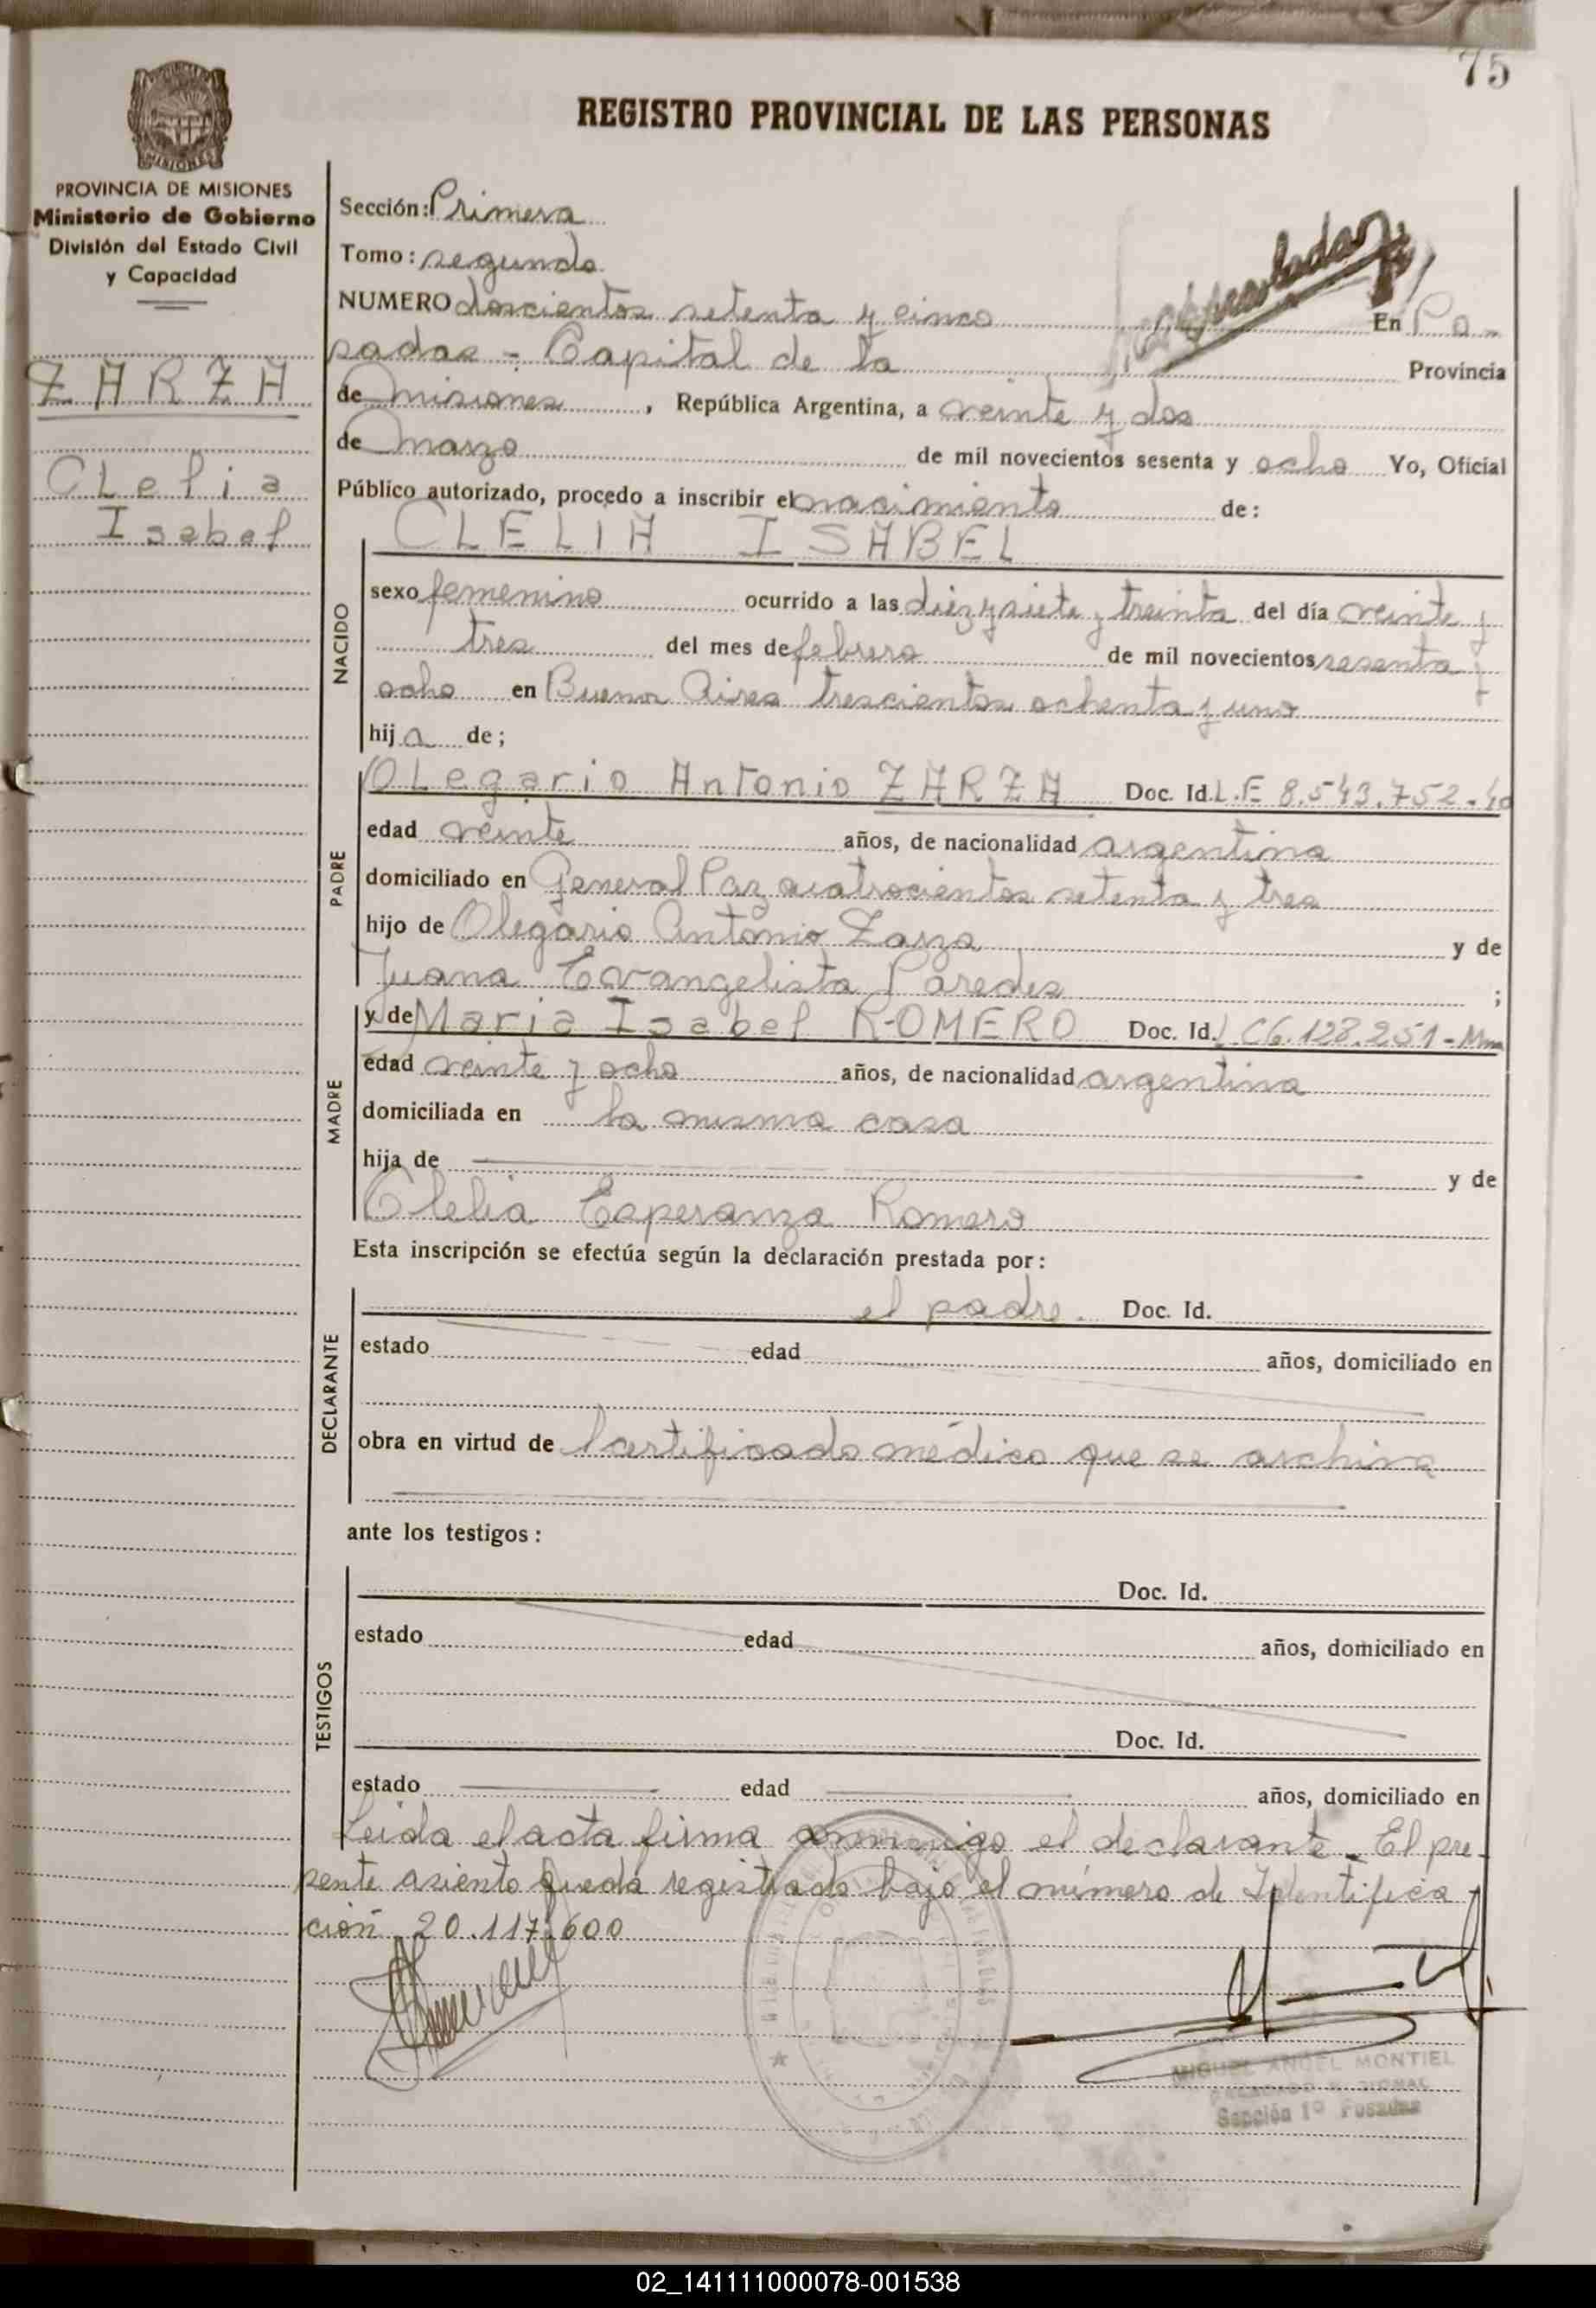 75
REGISTRO PROVINCIAL DE LAS PERSONAS
MISIONES
PROVINCIA DE MISIONES
Ministerio de Gobierno
División del Estado Civil
y Capacidad
ZARZA
Clelia
Isabel
Sección: Primera
Tomo: segundo
NUMERO doscientos setenta y cinco En Po-
sadas - Capital de la Provincia
de Misiones, República Argentina, a veinte y dos
de Marzo de mil novecientos sesenta y ocho Yo, Oficial
Público autorizado, procedo a inscribir el nacimiento de:
CLELIA ISABEL
NACIDO
sexo femenino ocurrido a las diez y siete y treinta del día veinte y
tres del mes de febrero de mil novecientos sesenta y
ocho en Buenos Aires trescientos ochenta y uno
hija de;
PADRE
Olegario Antonio ZARZA Doc. Id. L.E 8.543.752.
edad veinte años, de nacionalidad argentina
domiciliado en General Paz cuatrocientos setenta y tres
hijo de Olegario Antonio Zarza y de
Juana Evangelista Paredes ;
MADRE
y de Maria Isabel ROMERO Doc. Id. LC 6.128.251-
edad veinte y ocho años, de nacionalidad argentina
domiciliada en la misma casa
hija de y de
Clelia Esperanza Romero
Esta inscripción se efectúa según la declaración prestada por:
DECLARANTE
el padre. Doc. Id.
estado edad años, domiciliado en
obra en virtud de certificado médico que se archiva
ante los testigos:
TESTIGOS
Doc. Id.
estado edad años, domiciliado en
Doc. Id.
estado edad años, domiciliado en
Leida el acta firma conmigo el declarante. El pre-
sente asiento queda registrado bajo el número de Identifica
ción 20.117.600
MIGUEL ANGEL MONTIEL
Sección 1º Posadas
02_141111000078-001538